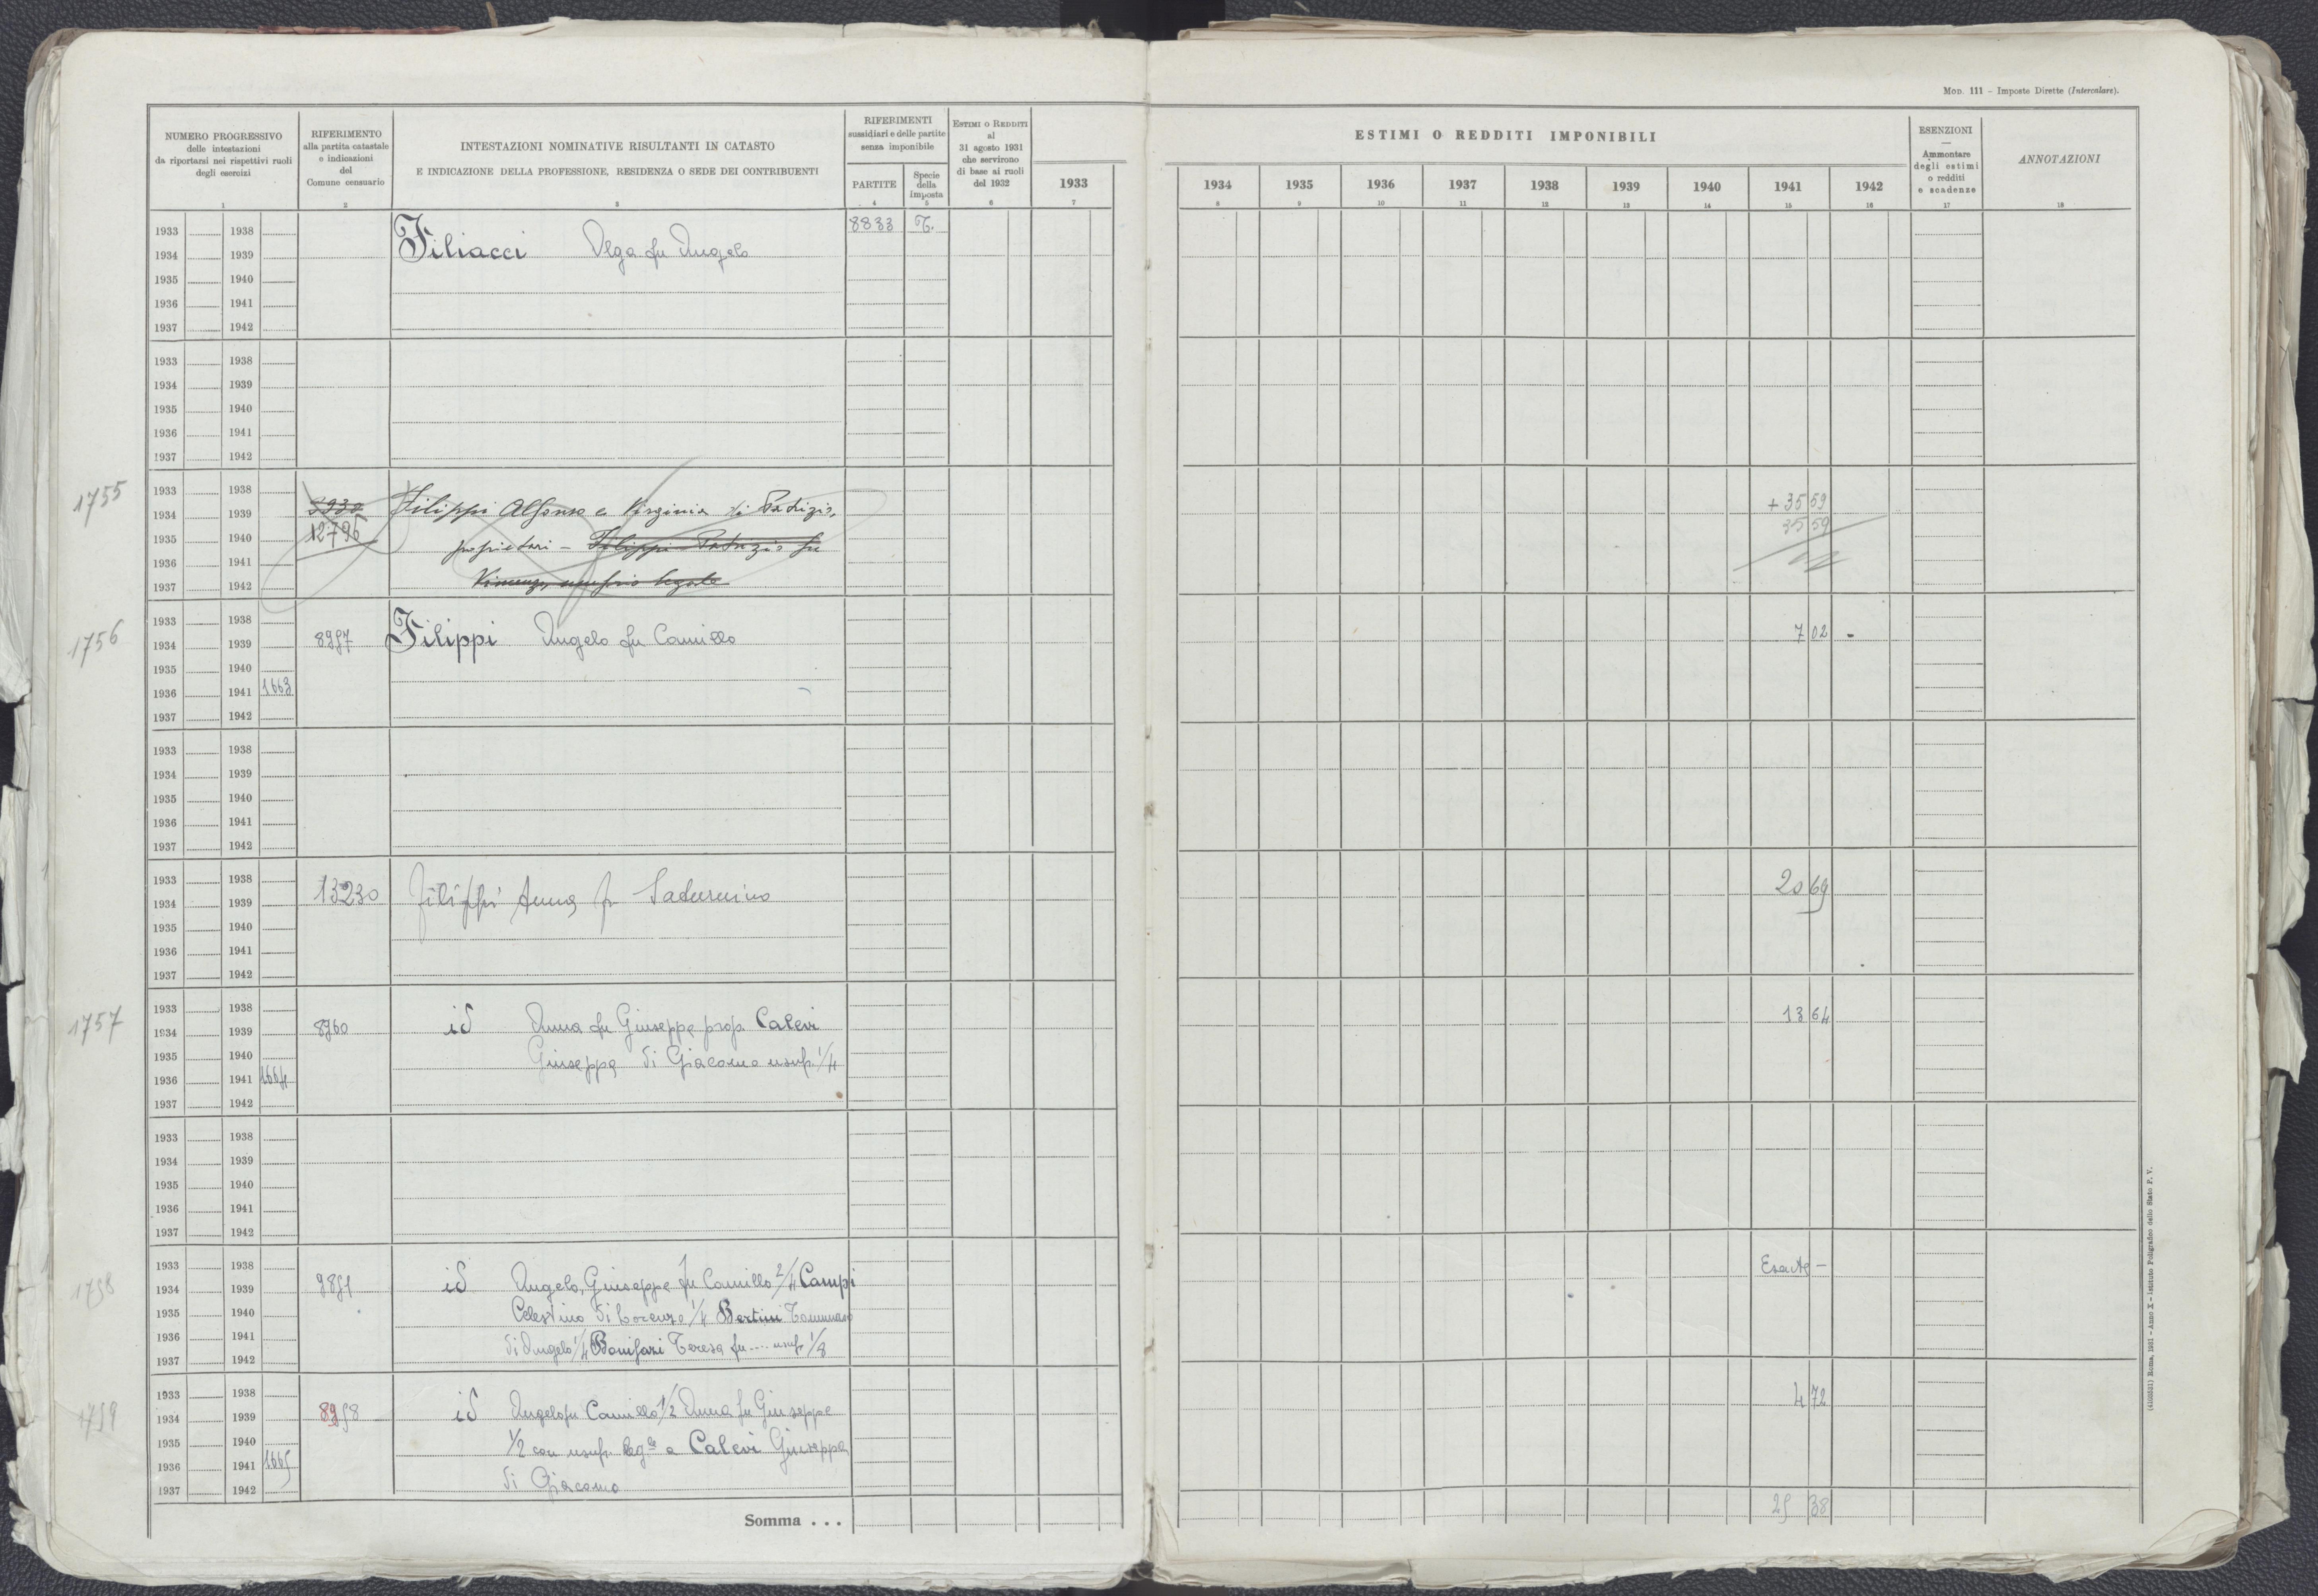 MOD. 111 - Imposte Dirette (Intercalare).
NUMERO PROGRESSIVO
delle intestazioni
da riportarsi nei rispettivi ruoli
degli esercizi
1
RIFERIMENTO
alla partita catastale
e indicazioni
del
Comune censuario
2
INTESTAZIONI NOMINATIVE RISULTANTI IN CATASTO
E INDICAZIONE DELLA PROFESSIONE, RESIDENZA O SEDE DEI CONTRIBUENTI
3
RIFERIMENTI
sussidiari e delle partite
senza imponibile
PARTITE
4
Specie
della
imposta
5
ESTIMI O REDDITI
al
31 agosto 1931
che servirono
di base ai ruoli
del 1932
6
1933
7
ESTIMI O REDDITI IMPONIBILI
1934 1935 1936 1937 1938 1939 1940 1941 1942
8 9 10 11 12 13 14 15 16
ESENZIONI
Ammontare
degli estimi
o redditi
e scadenze
17
ANNOTAZIONI
18
1933 1938 8833 T.
1934 1939 Filiacci Olga fu Angelo
1935 1940
1936 1941
1937 1942
1933 1938
1934 1939
1935 1940
1936 1941
1937 1942
1755
1933 1938
1934 1939 Filippi Alfonso e Virginia di Patrizio, + 35 59
1935 1940 12796 proprietari - Filippi Patrizio fu 35 59
1936 1941
1937 1942 Vincenzo, usufrio legale
1756
1933 1938
1934 1939 8957 Filippi Angelo fu Camillo 7 02
1935 1940
1936 1941 1663
1937 1942
1933 1938
1934 1939
1935 1940
1936 1941
1937 1942
1933 1938
1934 1939 13230 Filippi Anna fu Saturnino 20 69
1935 1940
1936 1941
1937 1942
1757
1933 1938
1934 1939 8960 id Anna fu Giuseppe prop. Calevi 13 64
1935 1940 Giuseppe di Giacomo usuf. 1/4
1936 1941 1664
1937 1942
1933 1938
1934 1939
1935 1940
1936 1941
1937 1942
1758
1933 1938 Esente -
1934 1939 9851 id Angelo, Giuseppe fu Camillo 2/4 Campi
1935 1940 Celestino di Lorenzo 1/4 Bertini Tommaso
1936 1941
1937 1942 di Angelo 1/4 Bonifazi Teresa fu .... usuf. 1/8
1759
1933 1938 4 72
1934 1939 8958 id Angelo fu Camillo 1/2 Anna fu Giuseppe
1935 1940 1/2 con usuf. leg.le a Calevi Giuseppe
1936 1941 1665
1937 1942 di Giacomo
Somma . . . 25 38
(4102551) Roma, 1931 - Anno X - Istituto Poligrafico dello Stato P. V.